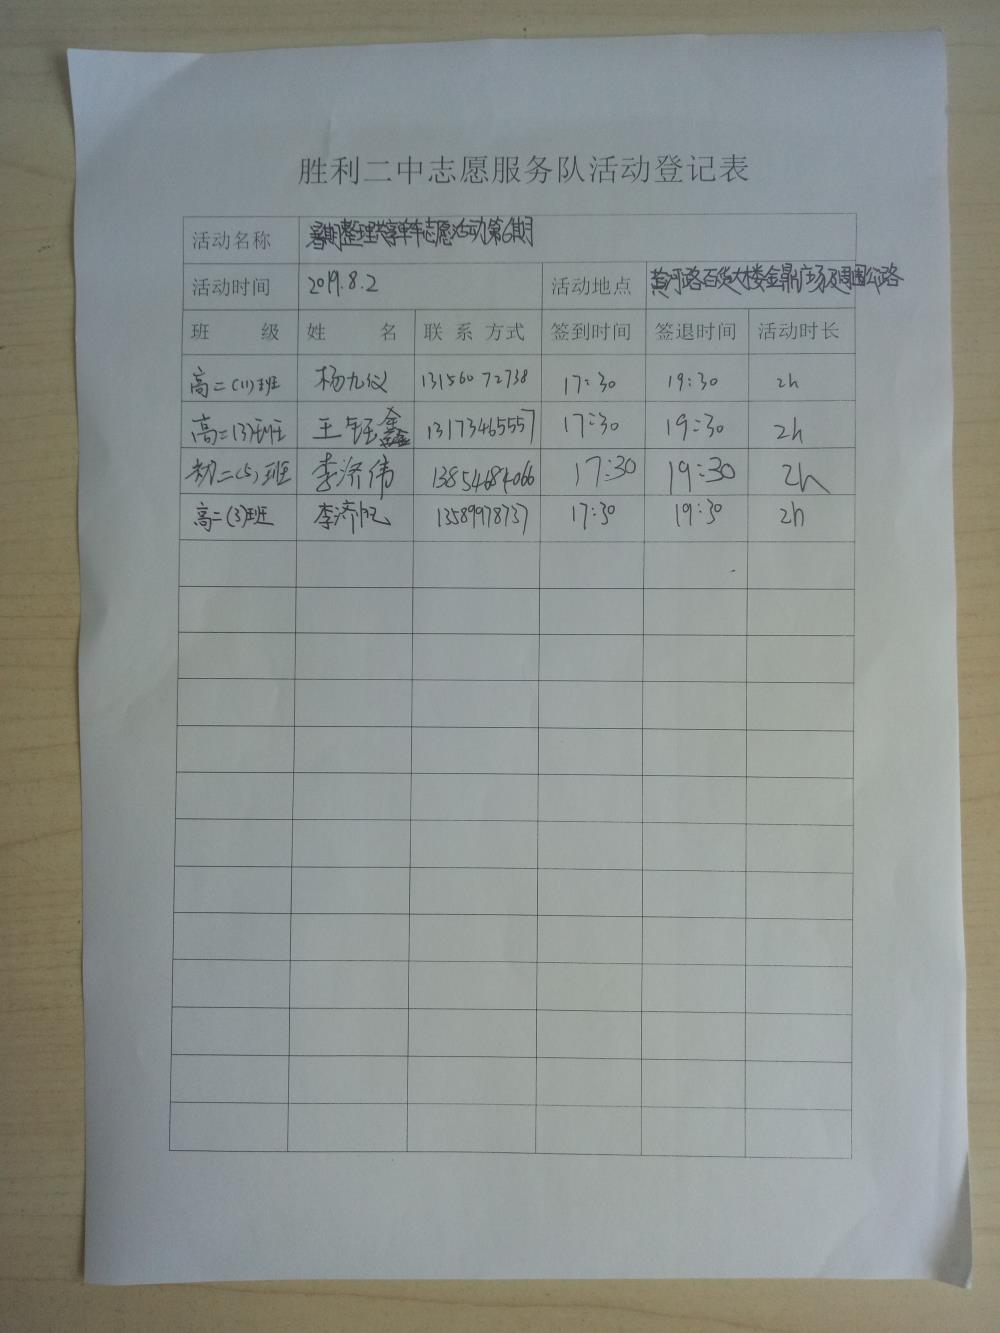 胜利二中志愿服务队活动登记表
活动名称 暑期整理共享单车志愿活动第6期
活动时间 2019.8.2 活动地点 黄河路百货大楼金鼎广场及周围公路
班 级 姓 名 联 系 方式 签到时间 签退时间 活动时长
高二(11)班 杨九仪 13156072738 17:30 19:30 2h
高二(3)班 王钰鑫 13173465557 17:30 19:30 2h
初二(5)班 李济伟 17:30 19:30 2h
高二(3)班 李济帆 13589978737 17:30 19:30 2h